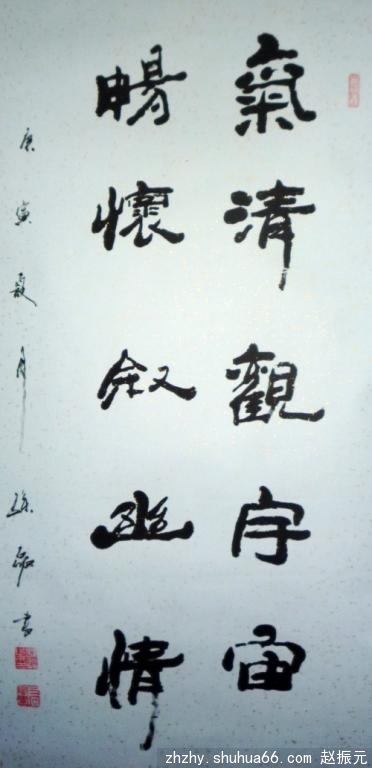 氣清觀宇宙
暢懷敘幽情
庚寅夏月
書
zhzhy.shuhua66.com 赵振元